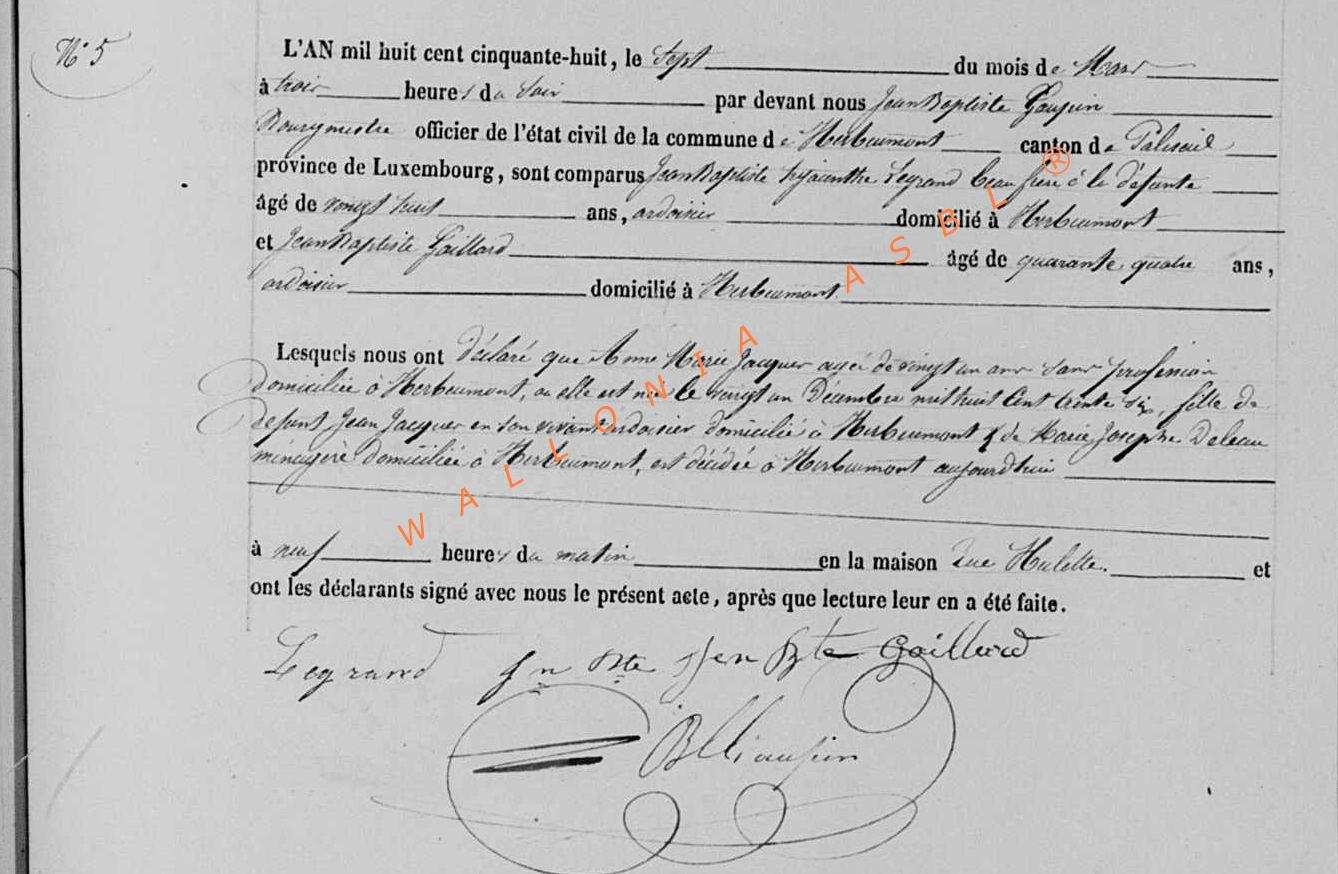 N° 5
L'AN mil huit cent cinquante-huit, le Sept du mois de Mars
à trois heures du soir par devant nous Jean Baptiste Goupin
Bourgmestre officier de l'état civil de la commune de Herbeumont canton de Paliseul
province de Luxembourg, sont comparus Jean Baptiste hyacinthe Legrand beau frère à la défunte
âgé de vingt huit ans, ardoisier domicilié à Herbeumont
et Jean Baptiste Gaillard âgé de quarante quatre ans,
ardoisier domicilié à Herbeumont
Lesquels nous ont déclaré que Anne Marie Jacques agée de vingt un ans sans profession
domiciliée à Herbeumont, ou elle est née le vingt un Décembre mil huit Cent trente six, fille de
defunt Jean Jacques en son vivant ardoisier domicilié à Herbeumont & de Marie Josephe Deleau
ménagère domiciliée à Herbeumont, est décédée à Herbeumont aujourd'hui
à neuf heures du matin en la maison Rue Hulette. et
ont les déclarants signé avec nous le présent acte, après que lecture leur en a été faite.
Legrand Jn Bte Jean Bte Gaillard
WALLONIA ASBL ®